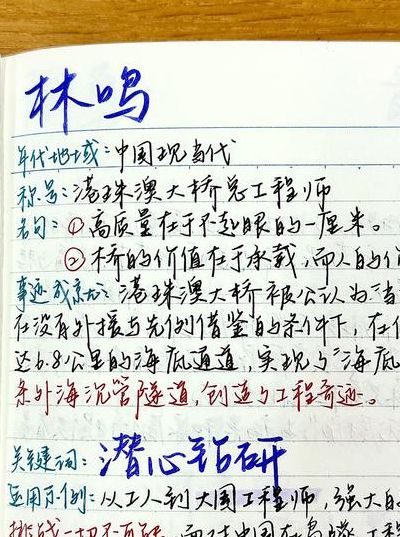 林鸣
年代地域:中国现当代
称号:港珠澳大桥总工程师
名句:①高质量在于不起眼的一厘米。
②桥的价值在于承载,而人的价
事迹成就:港珠澳大桥被公认为"当
在没有外援与先例借鉴的条件下,在
达6.8公里的海底通道,实现了"海底
条外海沉管隧道,创造了工程奇迹。
关键词:潜心钻研
运用示例:从工人到大国工程师,强大的
挑战一切不可能